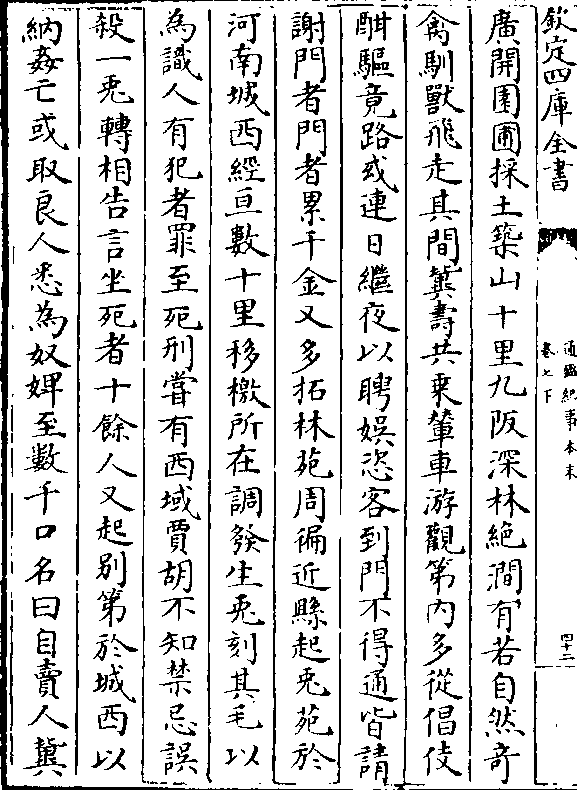 欽定四庫全書
通鑑紀事本末
卷七下
四十二
廣開園圃採土築山十里九阪深林絶澗有若自然奇
禽馴獸飛走其間冀壽共乗輦車游觀第内多從倡伎
酣驅竟路或連日繼夜以騁娱恣客到門不得通皆請
謝門者門者累千金又多拓林苑周徧近縣起兎苑於
河南城西經亘數十里移檄所在調發生兎刻其毛以
為識人有犯者罪至死刑嘗有西域賈胡不知禁忌誤
殺一兎轉相告言坐死者十餘人又起别第於城西以
納姦亡或取良人悉為奴婢至數千口名曰自賣人冀